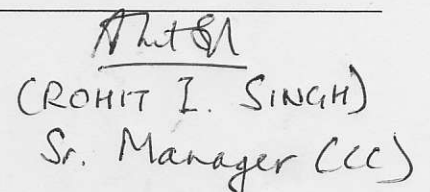 (ROHIT I. SINGH)
Sr. Manager (CC)